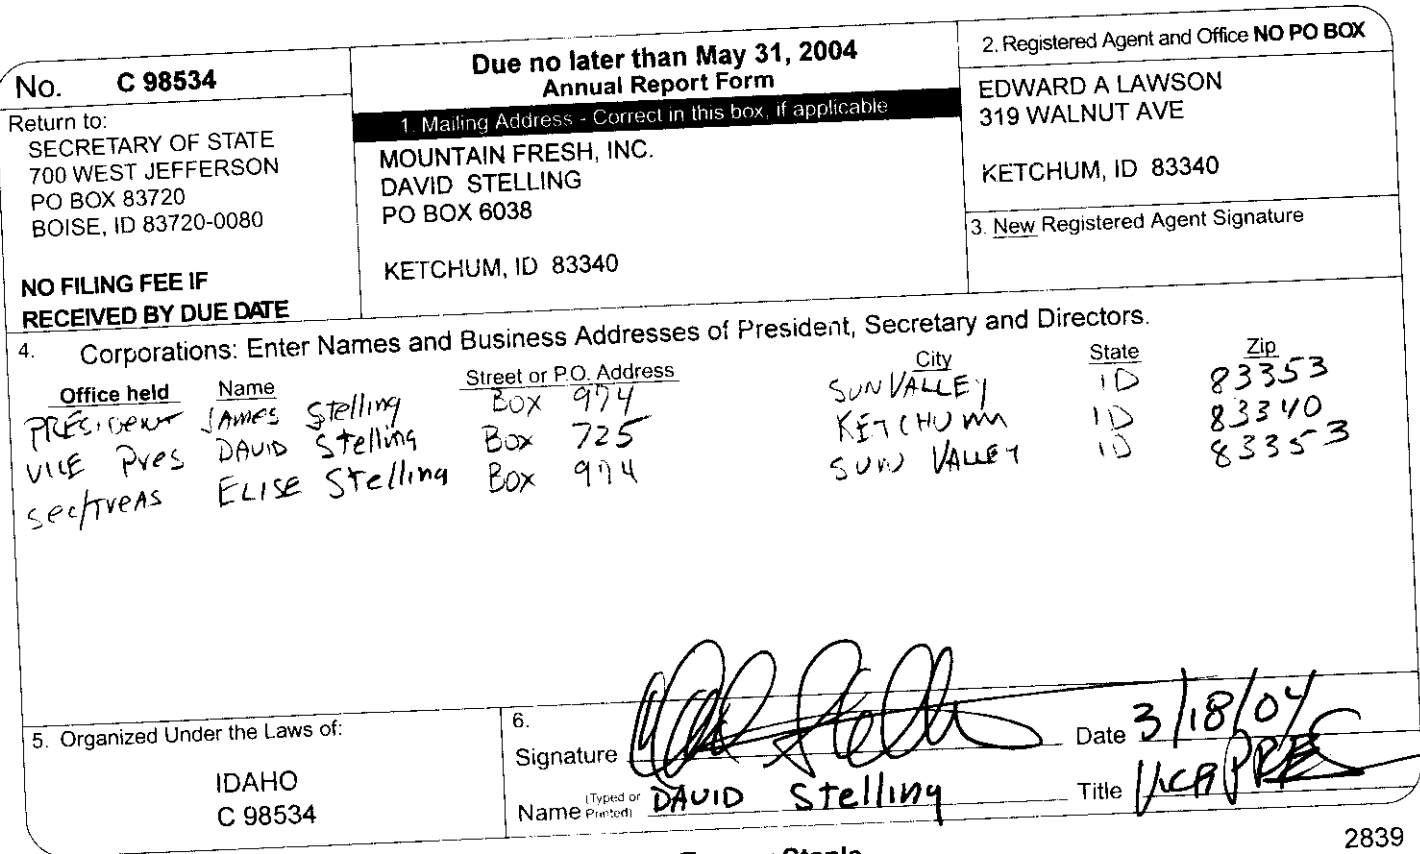 No. C 98534
Return to:
SECRETARY OF STATE
700 WEST JEFFERSON
PO BOX 83720
BOISE, ID 83720-0080
NO FILING FEE IF
RECEIVED BY DUE DATE
Due no later than May 31, 2004
Annual Report Form
1. Mailing Address - Correct in this box, if applicable
MOUNTAIN FRESH, INC.
DAVID STELLING
PO BOX 6038
KETCHUM, ID 83340
2. Registered Agent and Office NO PO BOX
EDWARD A LAWSON
319 WALNUT AVE
KETCHUM, ID 83340
3. New Registered Agent Signature
4. Corporations: Enter Names and Business Addresses of President, Secretary and Directors.
Office held Name Street or P.O. Address City State Zip
PRESIDENT JAMES Stelling BOX 974 SUN VALLEY ID 83353
VICE Pres DAVID Stelling Box 725 KETCHUM ID 83340
Sec/TreAS ELISE Stelling Box 974 SUN VALLEY ID 83353
5. Organized Under the Laws of:
IDAHO
C 98534
6.
Signature
Date 3/18/04
Name (Typed or Printed) DAVID Stelling
Title Vice PRES
2839